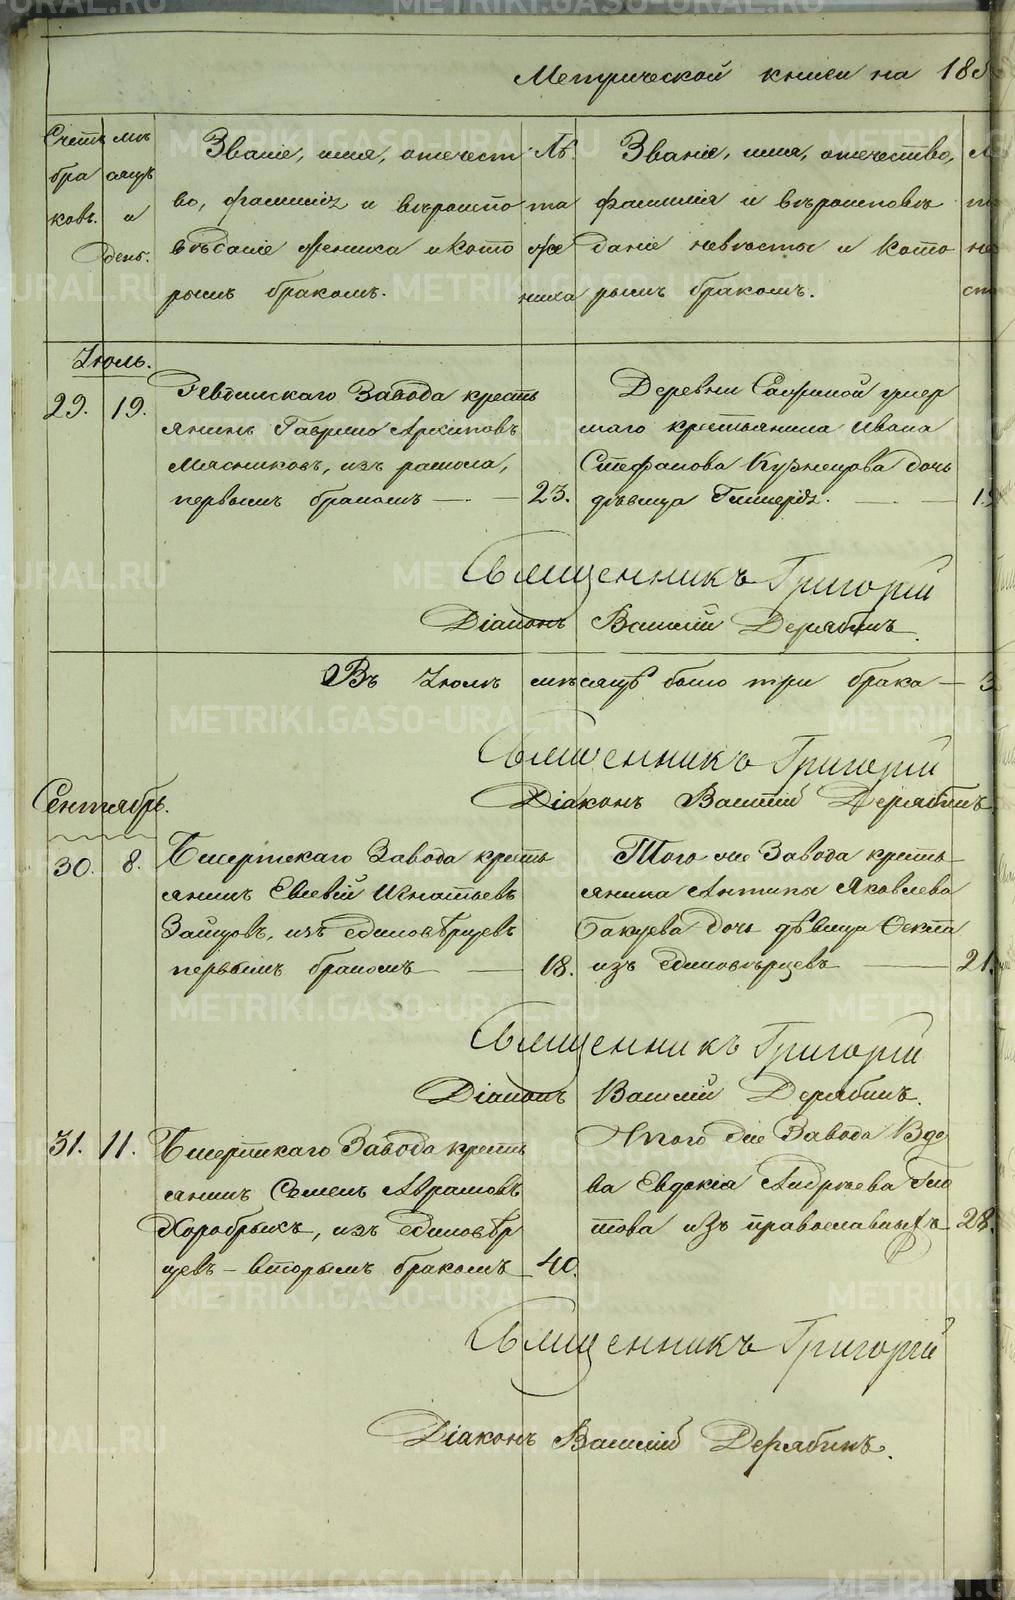 Метрической книги на 185
Счетъ бра ковъ.
мѣ сяцъ и день.
Званіе, имя, отечест
во, фамилія и вѣроиспо
вѣданіе жениха и кото
рымъ бракомъ.
Лѣ та же ниха
Званіе, имя, отечество,
фамилія и вѣроисповѣ
даніе невѣсты и кото
рымъ бракомъ.
Іюль.
29. 19.
Ревдинскаго Завода кресть
янинъ Гаврило Архиповъ
Мясниковъ, изъ раскола,
первымъ бракомъ — 23.
Деревни Сафиной умер
шаго крестьянина Ивана
Стефанова Кузнецова дочь
дѣвица Гликерія. — 19
Священникъ Григорій
Діаконъ Василій Дерябинъ.
Въ Іюлѣ мѣсяцѣ было три брака — 3
Священникъ Григорій
Діаконъ Василій Дерябинъ
Сентябрь.
30. 8.
Бисертскаго Завода кресть
янинъ Евсевій Игнатьевъ
Зайцовъ, изъ единовѣрцевъ
первымъ бракомъ — 18.
Того же Завода кресть
янина Антипы Яковлева
дочь дѣвица Ѳекла
изъ единовѣрцевъ — 21.
Священникъ Григорій
Діаконъ Василій Дерябинъ.
31. 11.
Бисертскаго Завода кресть
янинъ Семенъ Аврамовъ
Хоробрыхъ, изъ единовѣр
цевъ — вторымъ бракомъ 40.
Того же Завода Вдо
ва Евдокія Андреева
това изъ православныхъ 28.
Священникъ Григорій
Діаконъ Василій Дерябинъ.
METRIKI.GASO-URAL.RU